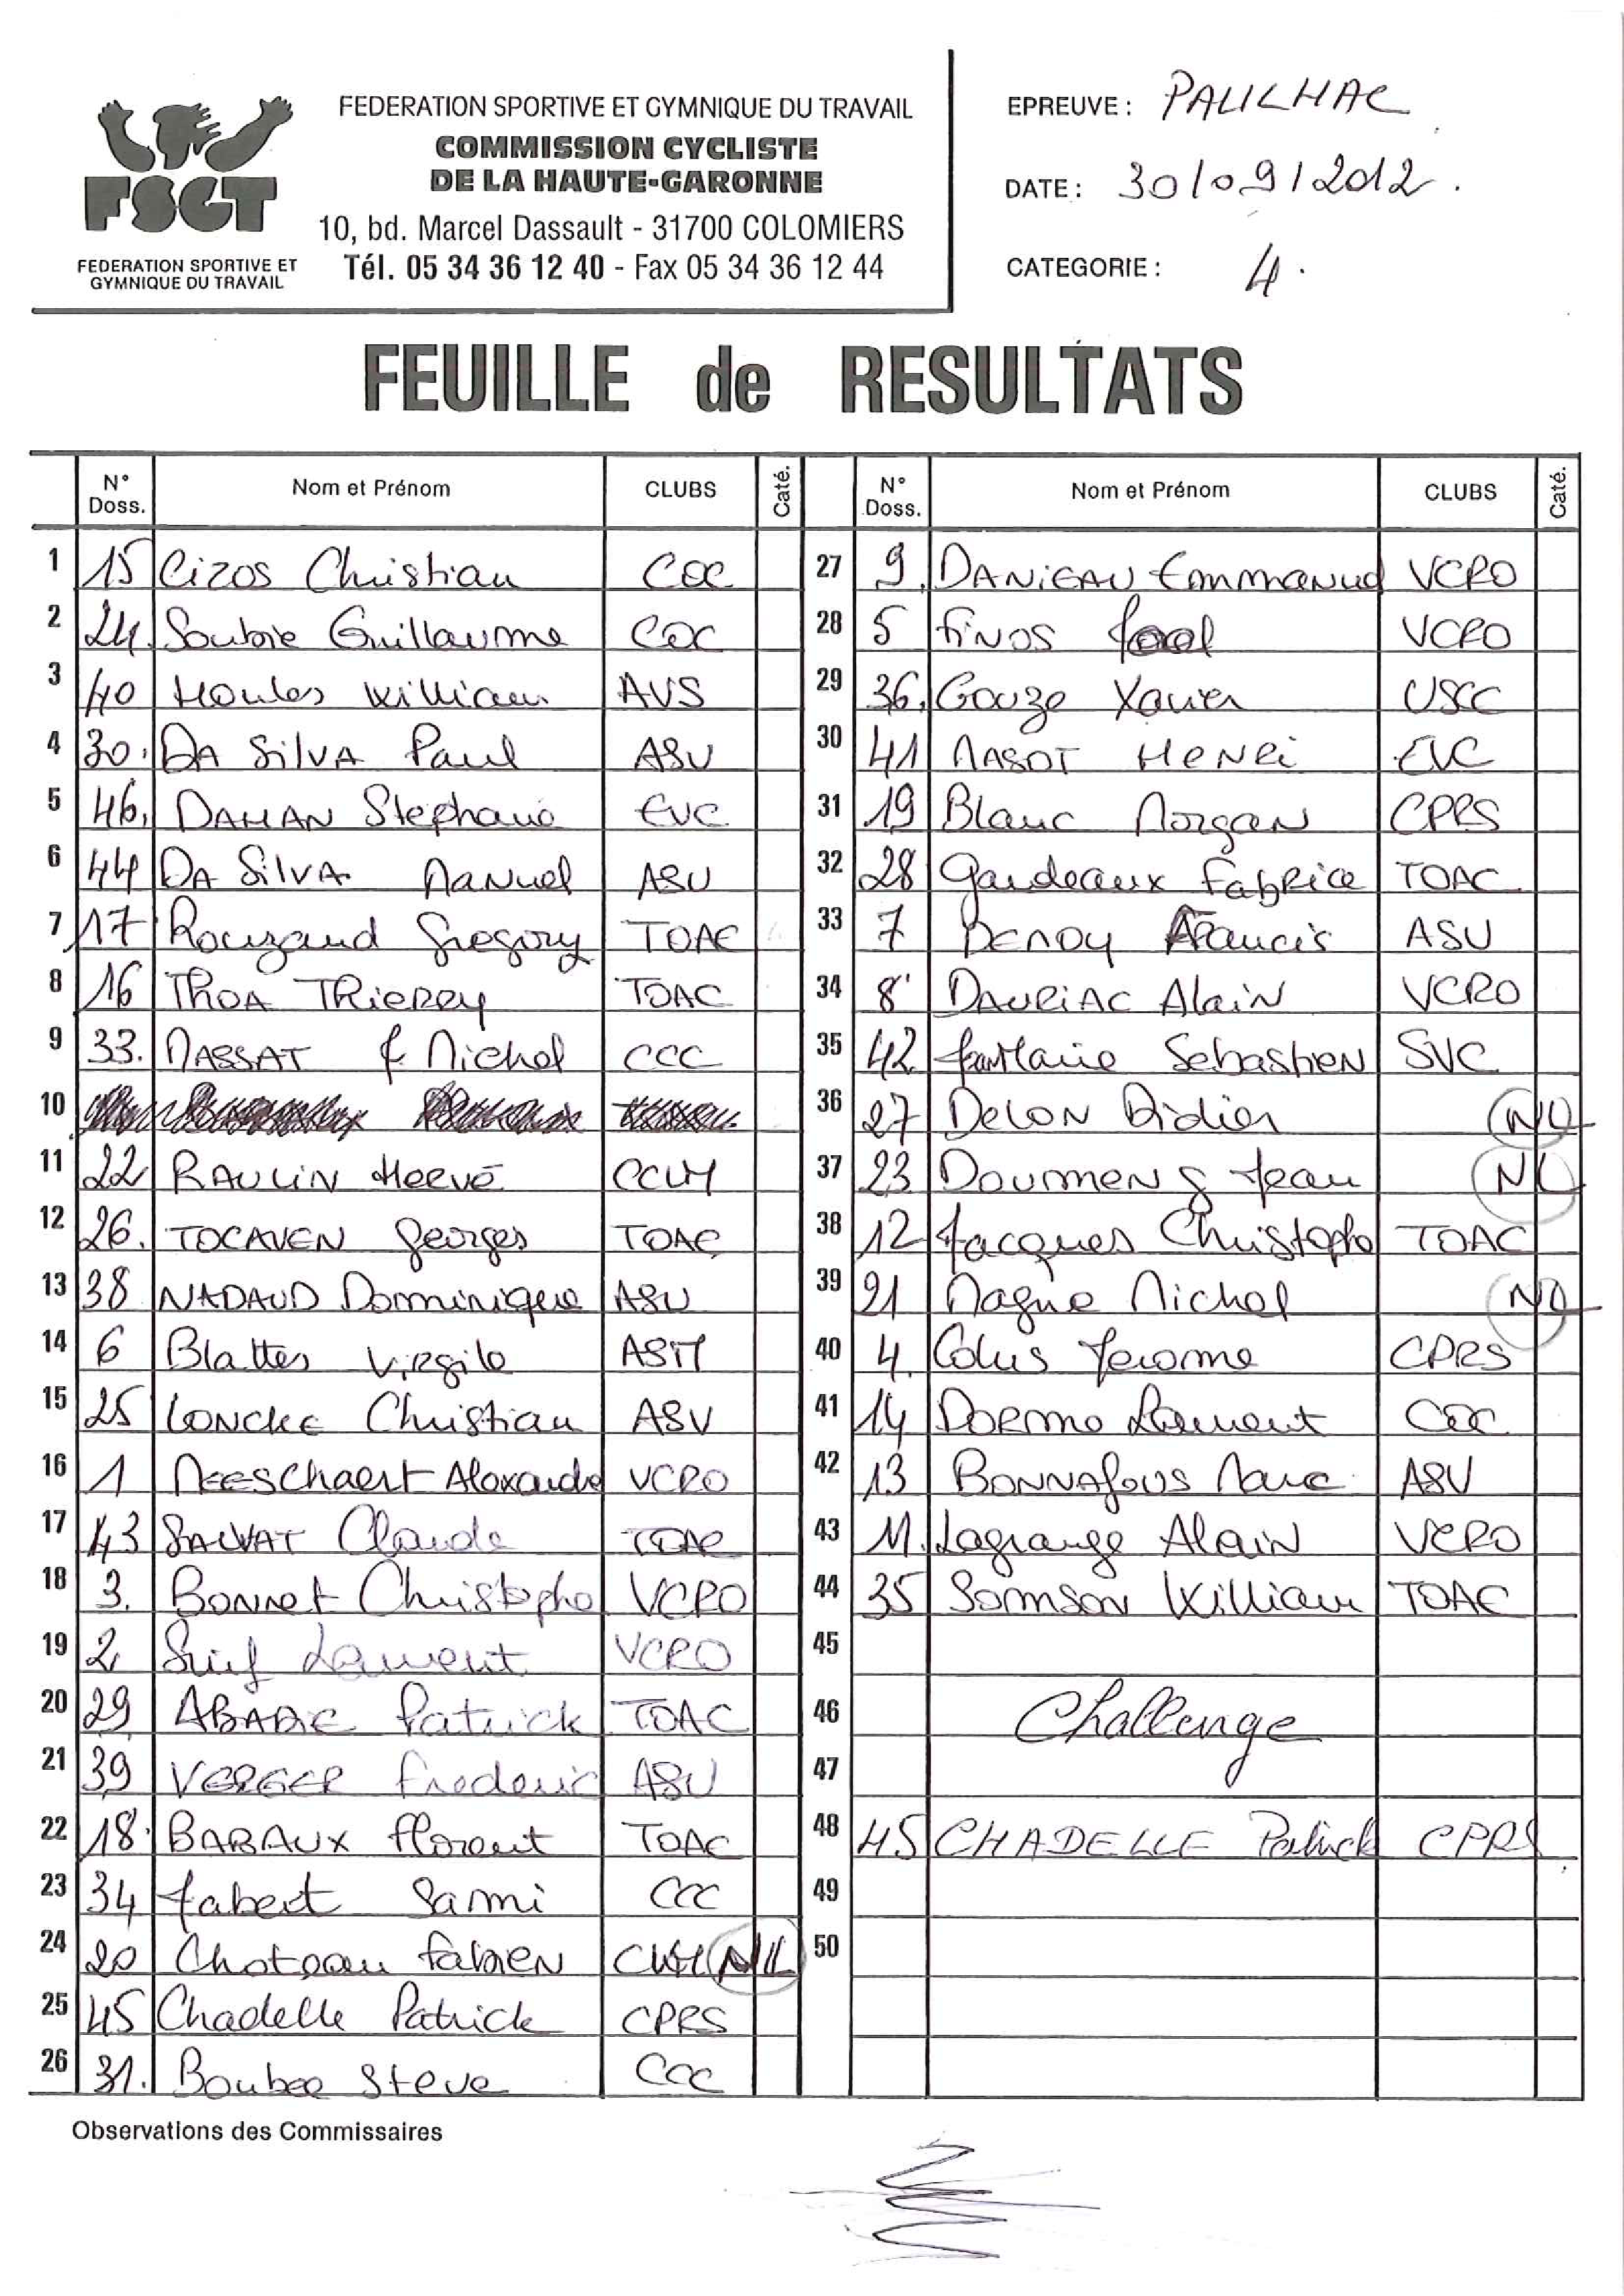 FEDERATION SPORTIVE ET GYMNIQUE DU TRAVAIL
COMMISSION CYCLISTE
DE LA HAUTE-GARONNE
10, bd. Marcel Dassault - 31700 COLOMIERS
Tél. 05 34 36 12 40 - Fax 05 34 36 12 44
FSGT
FEDERATION SPORTIVE ET
GYMNIQUE DU TRAVAIL
EPREUVE : PAULHAC
DATE : 30/09/2012.
CATEGORIE : 4.
FEUILLE de RESULTATS
N° Doss. Nom et Prénom CLUBS Caté.
1 15 Cizos Christian COC
2 24. Soubie Guillaume COC
3 40 Houles William AVS
4 30. DA SILVA Paul ASU
5 46. DAHAN Stephane EVC
6 44 DA SILVA Manuel ASU
7 17 Rouzaud Gregory TOAC
8 16 THOA THIERRY TOAC
9 33. MASSAT J. Michel CCC
10
11 22 RAULIN Hervé CCLM
12 26. TOCAVEN Georges TOAC
13 38 NADAUD Dominique ASU
14 6 Blattes Virgile ASM
15 25 LONCKE Christian ASV
16 1 MEESchaert Alexandre VCRO
17 43 SALVAT Claude TOAC
18 3. Bonnet Christophe VCRO
19 2 Suif Laurent VCRO
20 29 ABADIE Patrick TOAC
21 39 VERGER Frederic ASU
22 18. BARAUX Florent TOAC
23 34 Jabert Sami CCC
24 20 Choteau Fabien NL
25 45 Chadelle Patrick CPRS
26 31. Boubee Steve CCC
N° Doss. Nom et Prénom CLUBS Caté.
27 9. DANIEAU Emmanuel VCRO
28 5 FINOS VCRO
29 36. Gouze Xavier USCC
30 41 MASOT HENRI EVC
31 19 Blanc Morgan CPRS
32 28 Gaudeaux Fabrice TOAC
33 7 DENOY Francis ASU
34 8 DAURIAC Alain VCRO
35 42 Fontaine Sebastien SVC
36 27 Delon Didier NL
37 23 Doumeng Jean NL
38 12 Jacques Christophe TOAC
39 21 Magne Michel NL
40 4. Colus Jerome CPRS
41 14 Dorme Laurent COC
42 13 BONNAFOUS Marc ASV
43 11. Lagrange Alain VCRO
44 35 Samson William TOAC
45
46 Challenge
47
48 45 CHADELLE Patrick CPRS
49
50
Observations des Commissaires